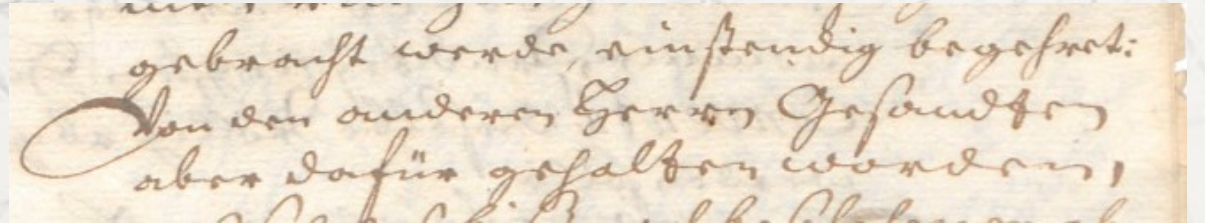 gebracht werde, einstendig begehret:
Von den anderen Herrn Gesandten
aber dafür gehalten worden,